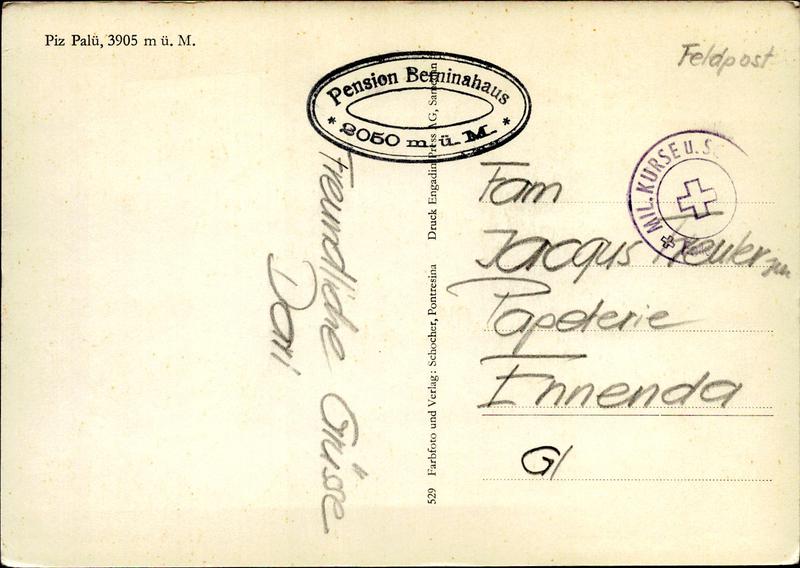 Piz Palü, 3905 m ü. M.
Feldpost
Pension Berninahaus
* 2050 m ü. M. *
MIL. KURSE u. S
Freundliche Grüsse
Dori
529 Farbfoto und Verlag: Schocher, Pontresina Druck Engadin Press AG, Samedan
Fam
Jacqus Treuler
Papeterie
Ennenda
Gl